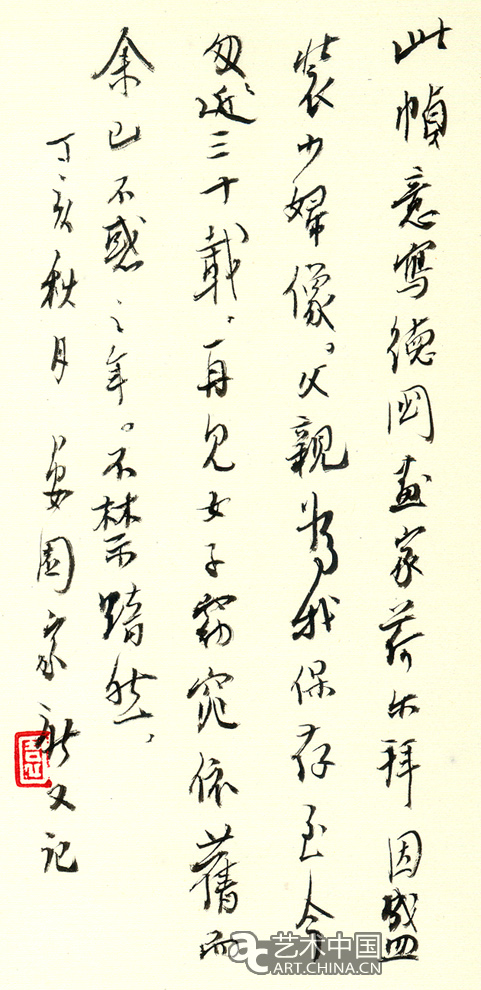 此幀意寫德囯畫家荷尔拜因盛
裝少婦像。父親為我保存至今
匆〻近三十載，再見女子窈窕依舊而
余已不惑之年。不禁黯然，
丁亥秋月 園家新又記
艺术中国
ART.CHINA.CN